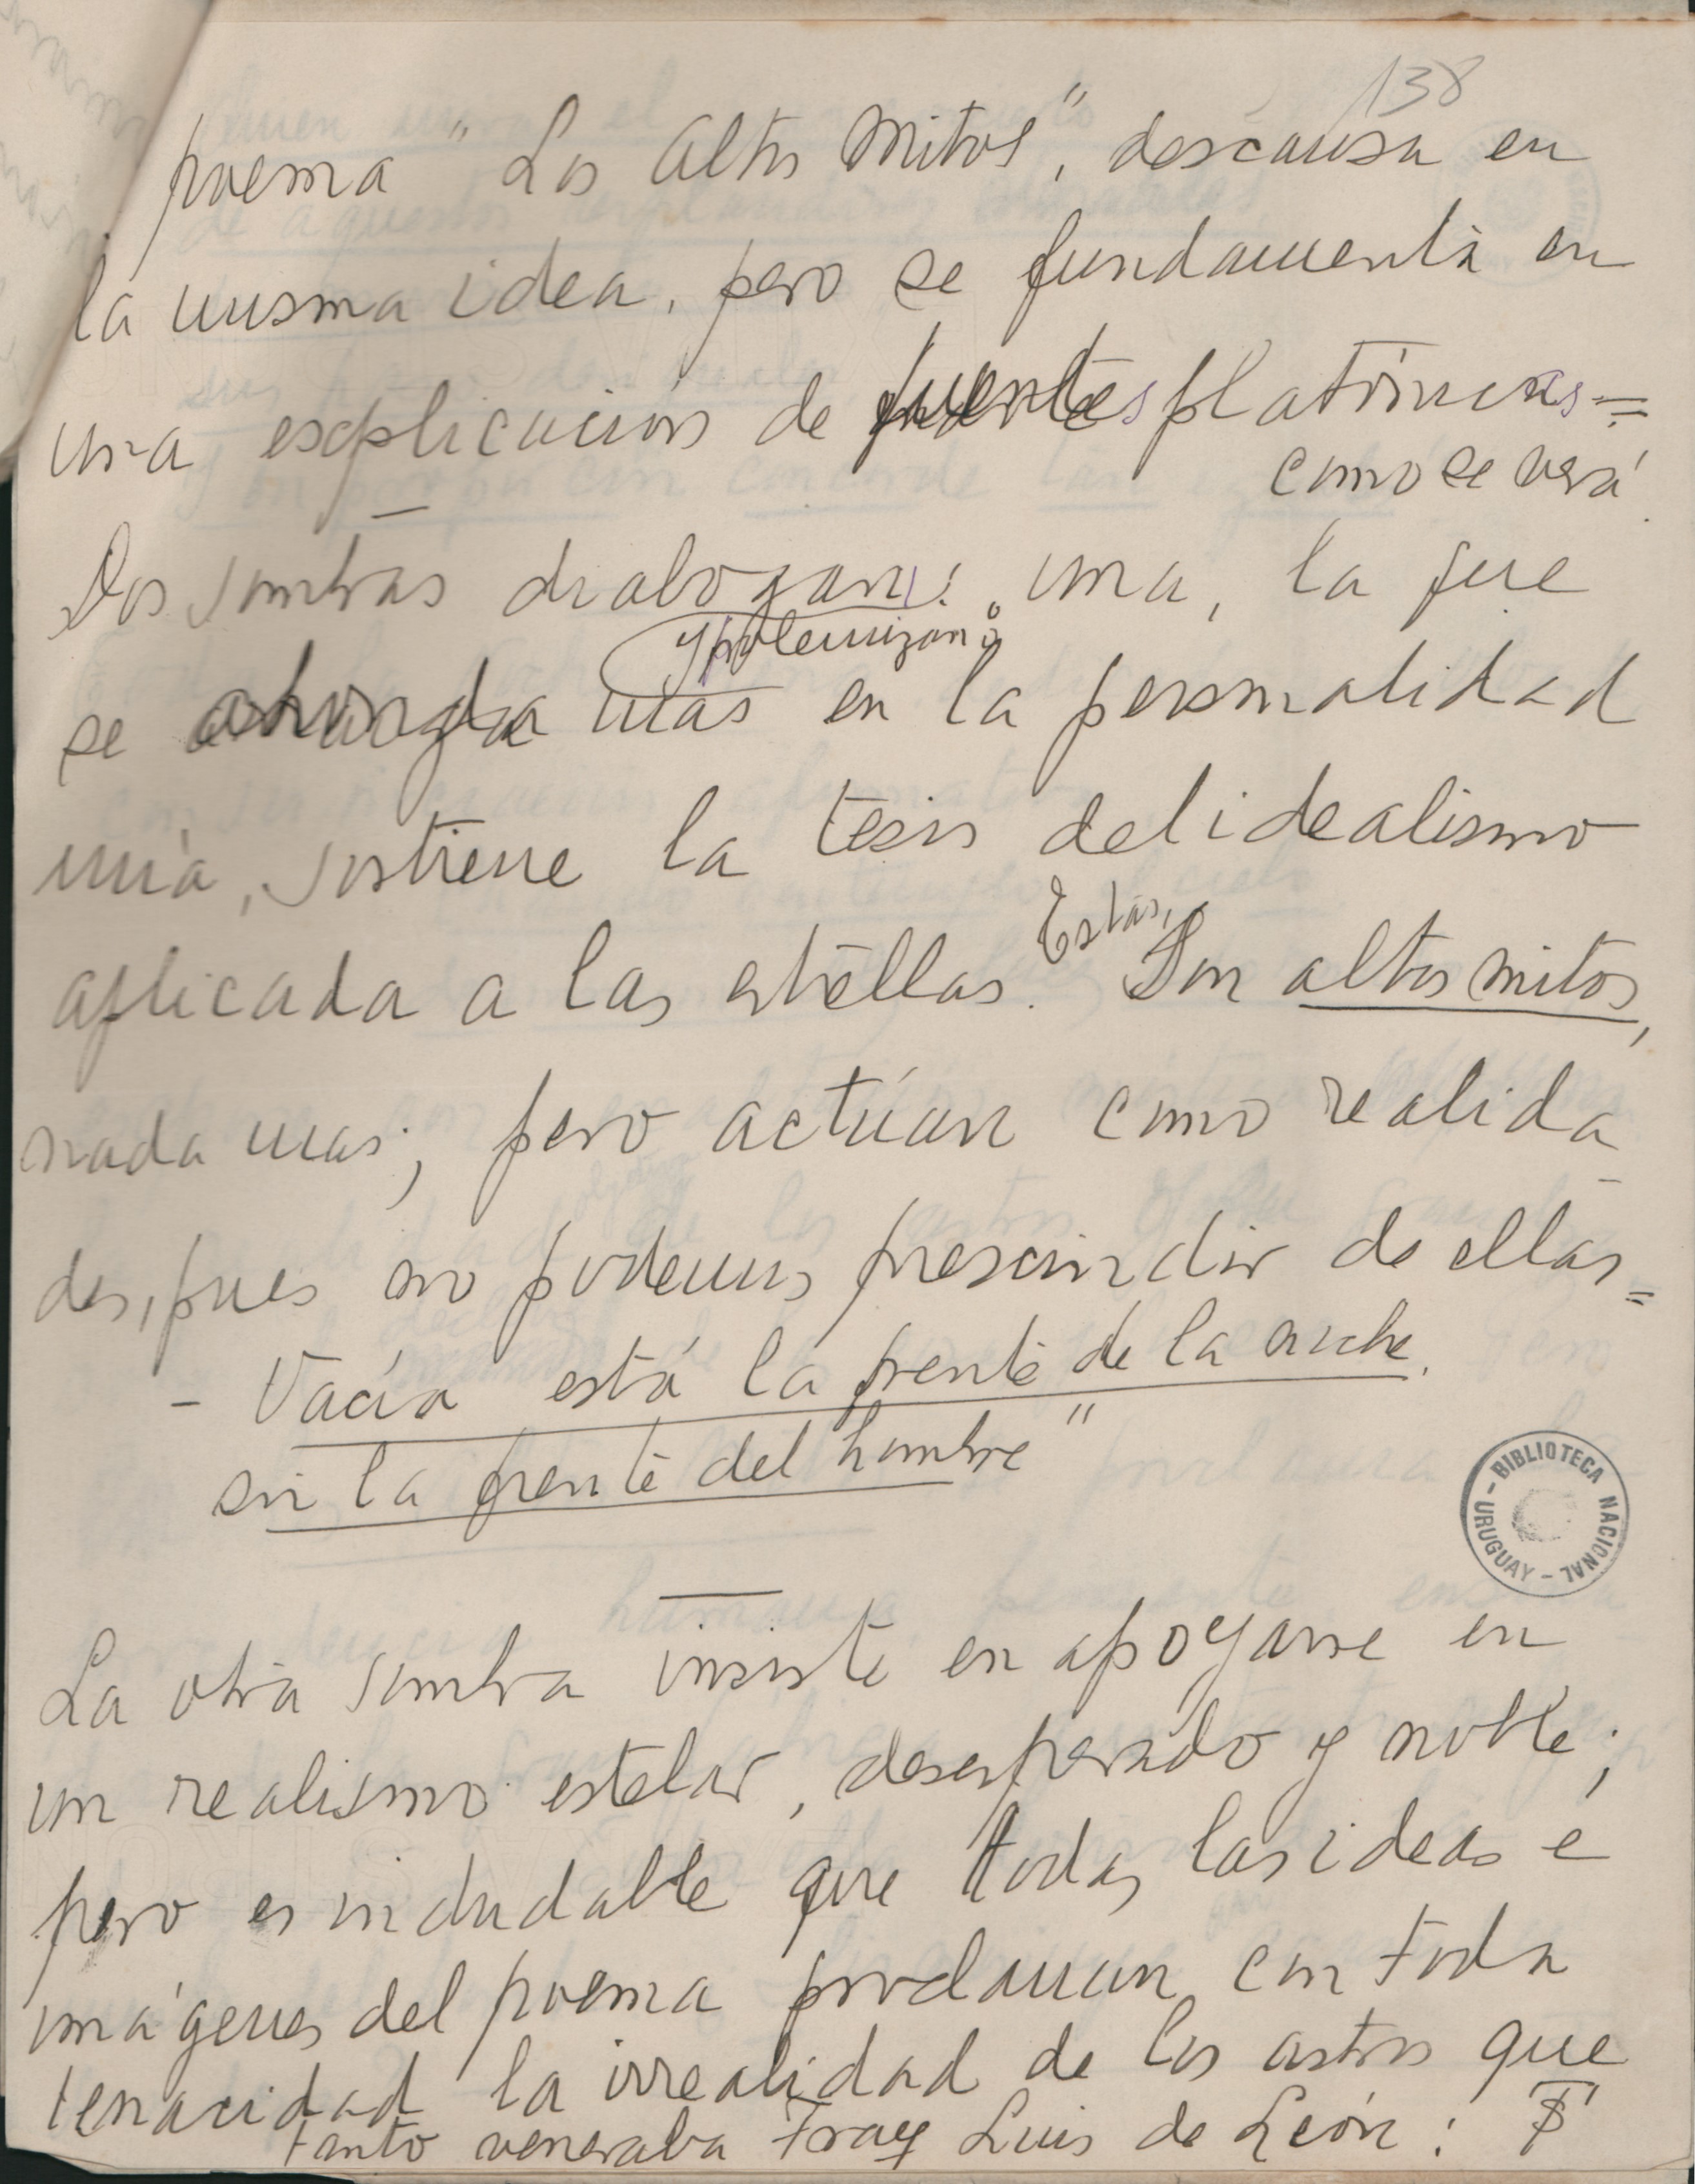 138
poema "Los Altos Mitos", descansa en
la misma idea, pero se fundamenta en
una explicación de fuentes platónicas =
como se verá.
Dos sombras dialogan: una, la que
y polemizan:
se ahonda más en la personalidad
mía, sostiene la tesis del idealismo
aplicada a las estrellas. Estas, Son altos mitos,
nada mas; pero actúan como realida-
des, pues no podemos prescindir de ellas =
- Vacía está la frente de la noche.
sin la frente del hombre"
La otra sombra insiste en apoyarse en
un realismo estelar, desesperado y noble;
pero es indudable que todas las ideas e
imágenes del poema proclaman con toda
tenacidad la irrealidad de los astros que
tanto veneraba Fray Luis de León:
- BIBLIOTECA NACIONAL - URUGUAY